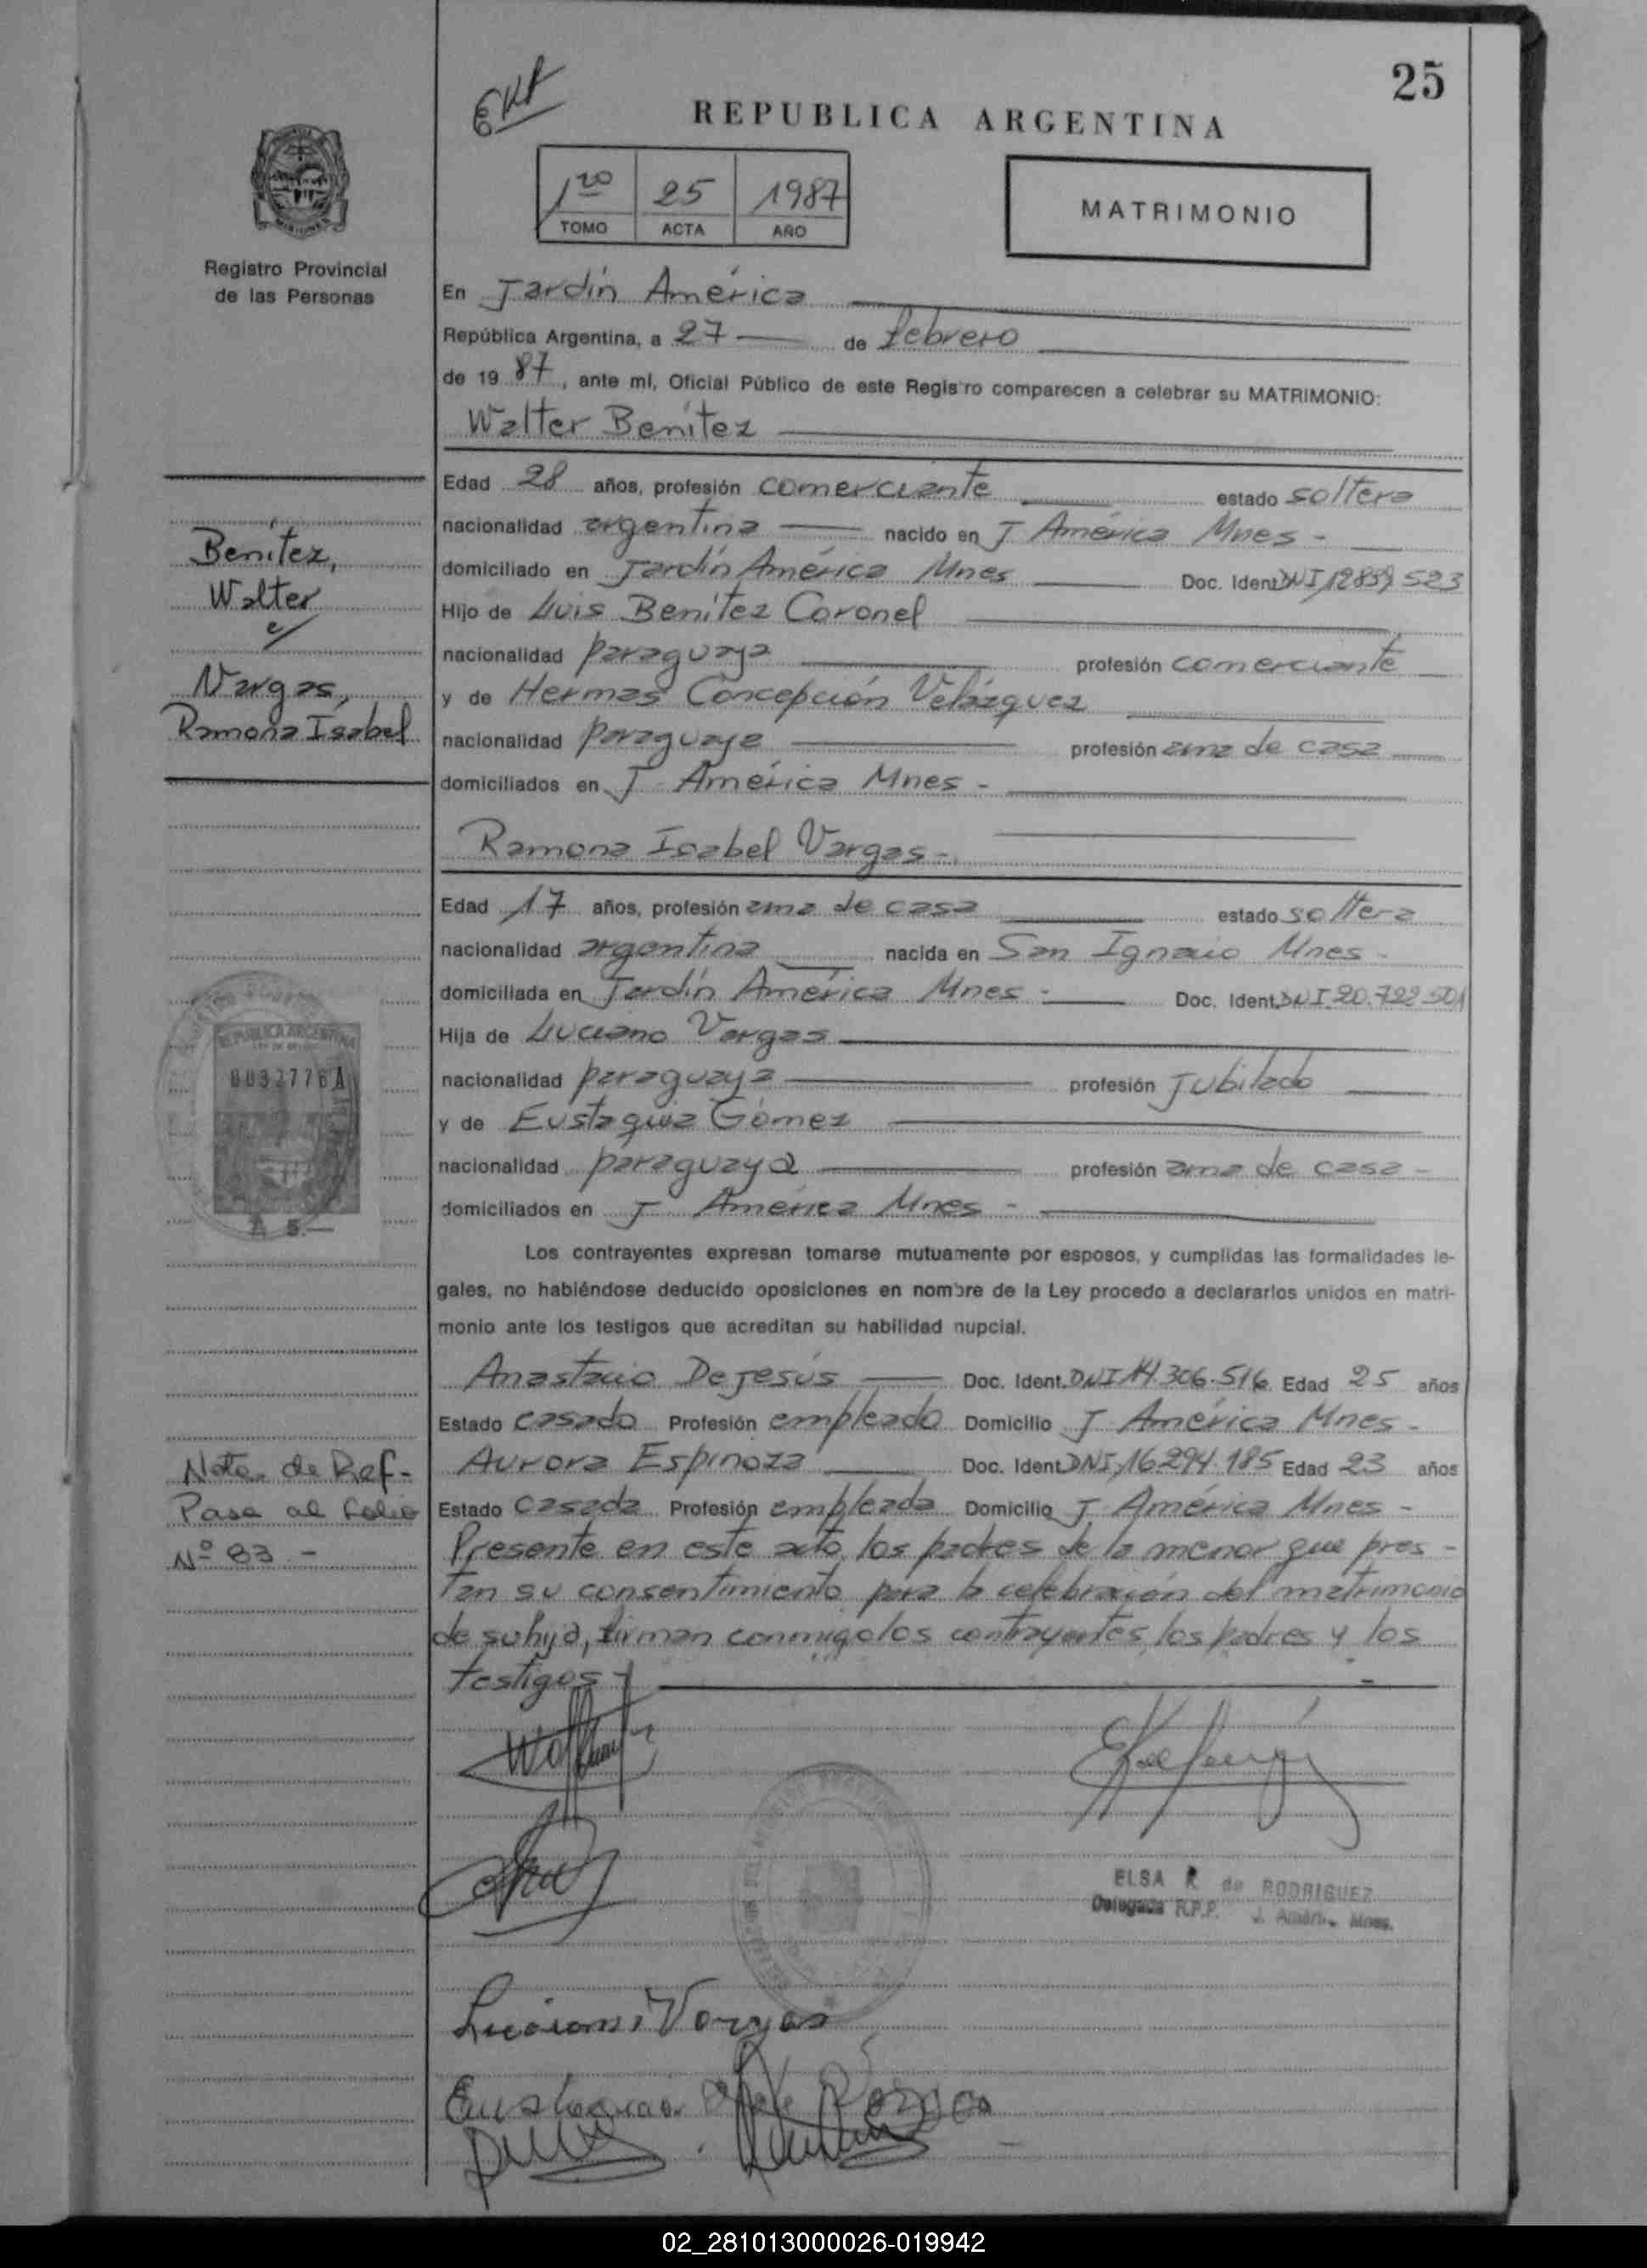 25
REPUBLICA ARGENTINA
1ro 25 1987
TOMO ACTA AÑO
MATRIMONIO
Registro Provincial
de las Personas
En Jardín América
República Argentina, a 27 de febrero
de 19 87, ante mí, Oficial Público de este Registro comparecen a celebrar su MATRIMONIO:
Walter Benítez
Edad 28 años, profesión comerciante estado soltera
nacionalidad argentina nacido en J América Mnes -
domiciliado en Jardín América Mnes Doc. Ident. DNI 12859 523
Hijo de Luis Benítez Coronel
nacionalidad paraguaya profesión comerciante
y de Hermas Concepción Velázquez
nacionalidad paraguaya profesión ama de casa
domiciliados en J América Mnes -
Benítez,
Walter
c/
Vargas,
Ramona Isabel
Ramona Isabel Vargas -
Edad 17 años, profesión ama de casa estado soltera
nacionalidad argentina nacida en San Ignacio Mnes -
domiciliada en Jardín América Mnes - Doc. Ident. DNI 20.722.501
Hija de Luciano Vargas
nacionalidad paraguaya profesión Jubilado
y de Eustaquia Gómez
nacionalidad paraguaya profesión ama de casa -
domiciliados en J América Mnes -
REPUBLICA ARGENTINA
0032776 A
A 5.—
Los contrayentes expresan tomarse mutuamente por esposos, y cumplidas las formalidades le-
gales, no habiéndose deducido oposiciones en nombre de la Ley procedo a declararlos unidos en matri-
monio ante los testigos que acreditan su habilidad nupcial.
Anastacio Dejesús Doc. Ident. DNI 14.306.516 Edad 25 años
Estado casado Profesión empleado Domicilio J América Mnes -
Aurora Espinoza Doc. Ident. DNI 16.294.185 Edad 23 años
Estado casada Profesión empleada Domicilio J América Mnes -
Nota de Ref-
Pasa al folio
Nº 83 -
Presente en este acto los padres de la menor que pres-
tan su consentimiento para la celebración del matrimonio
de su hija, firman conmigo los contrayentes, los padres y los
testigos
ELSA R de RODRIGUEZ
Delegada R.P.P. J. Amér. Mnes.
Luciano Vargas
02_281013000026-019942